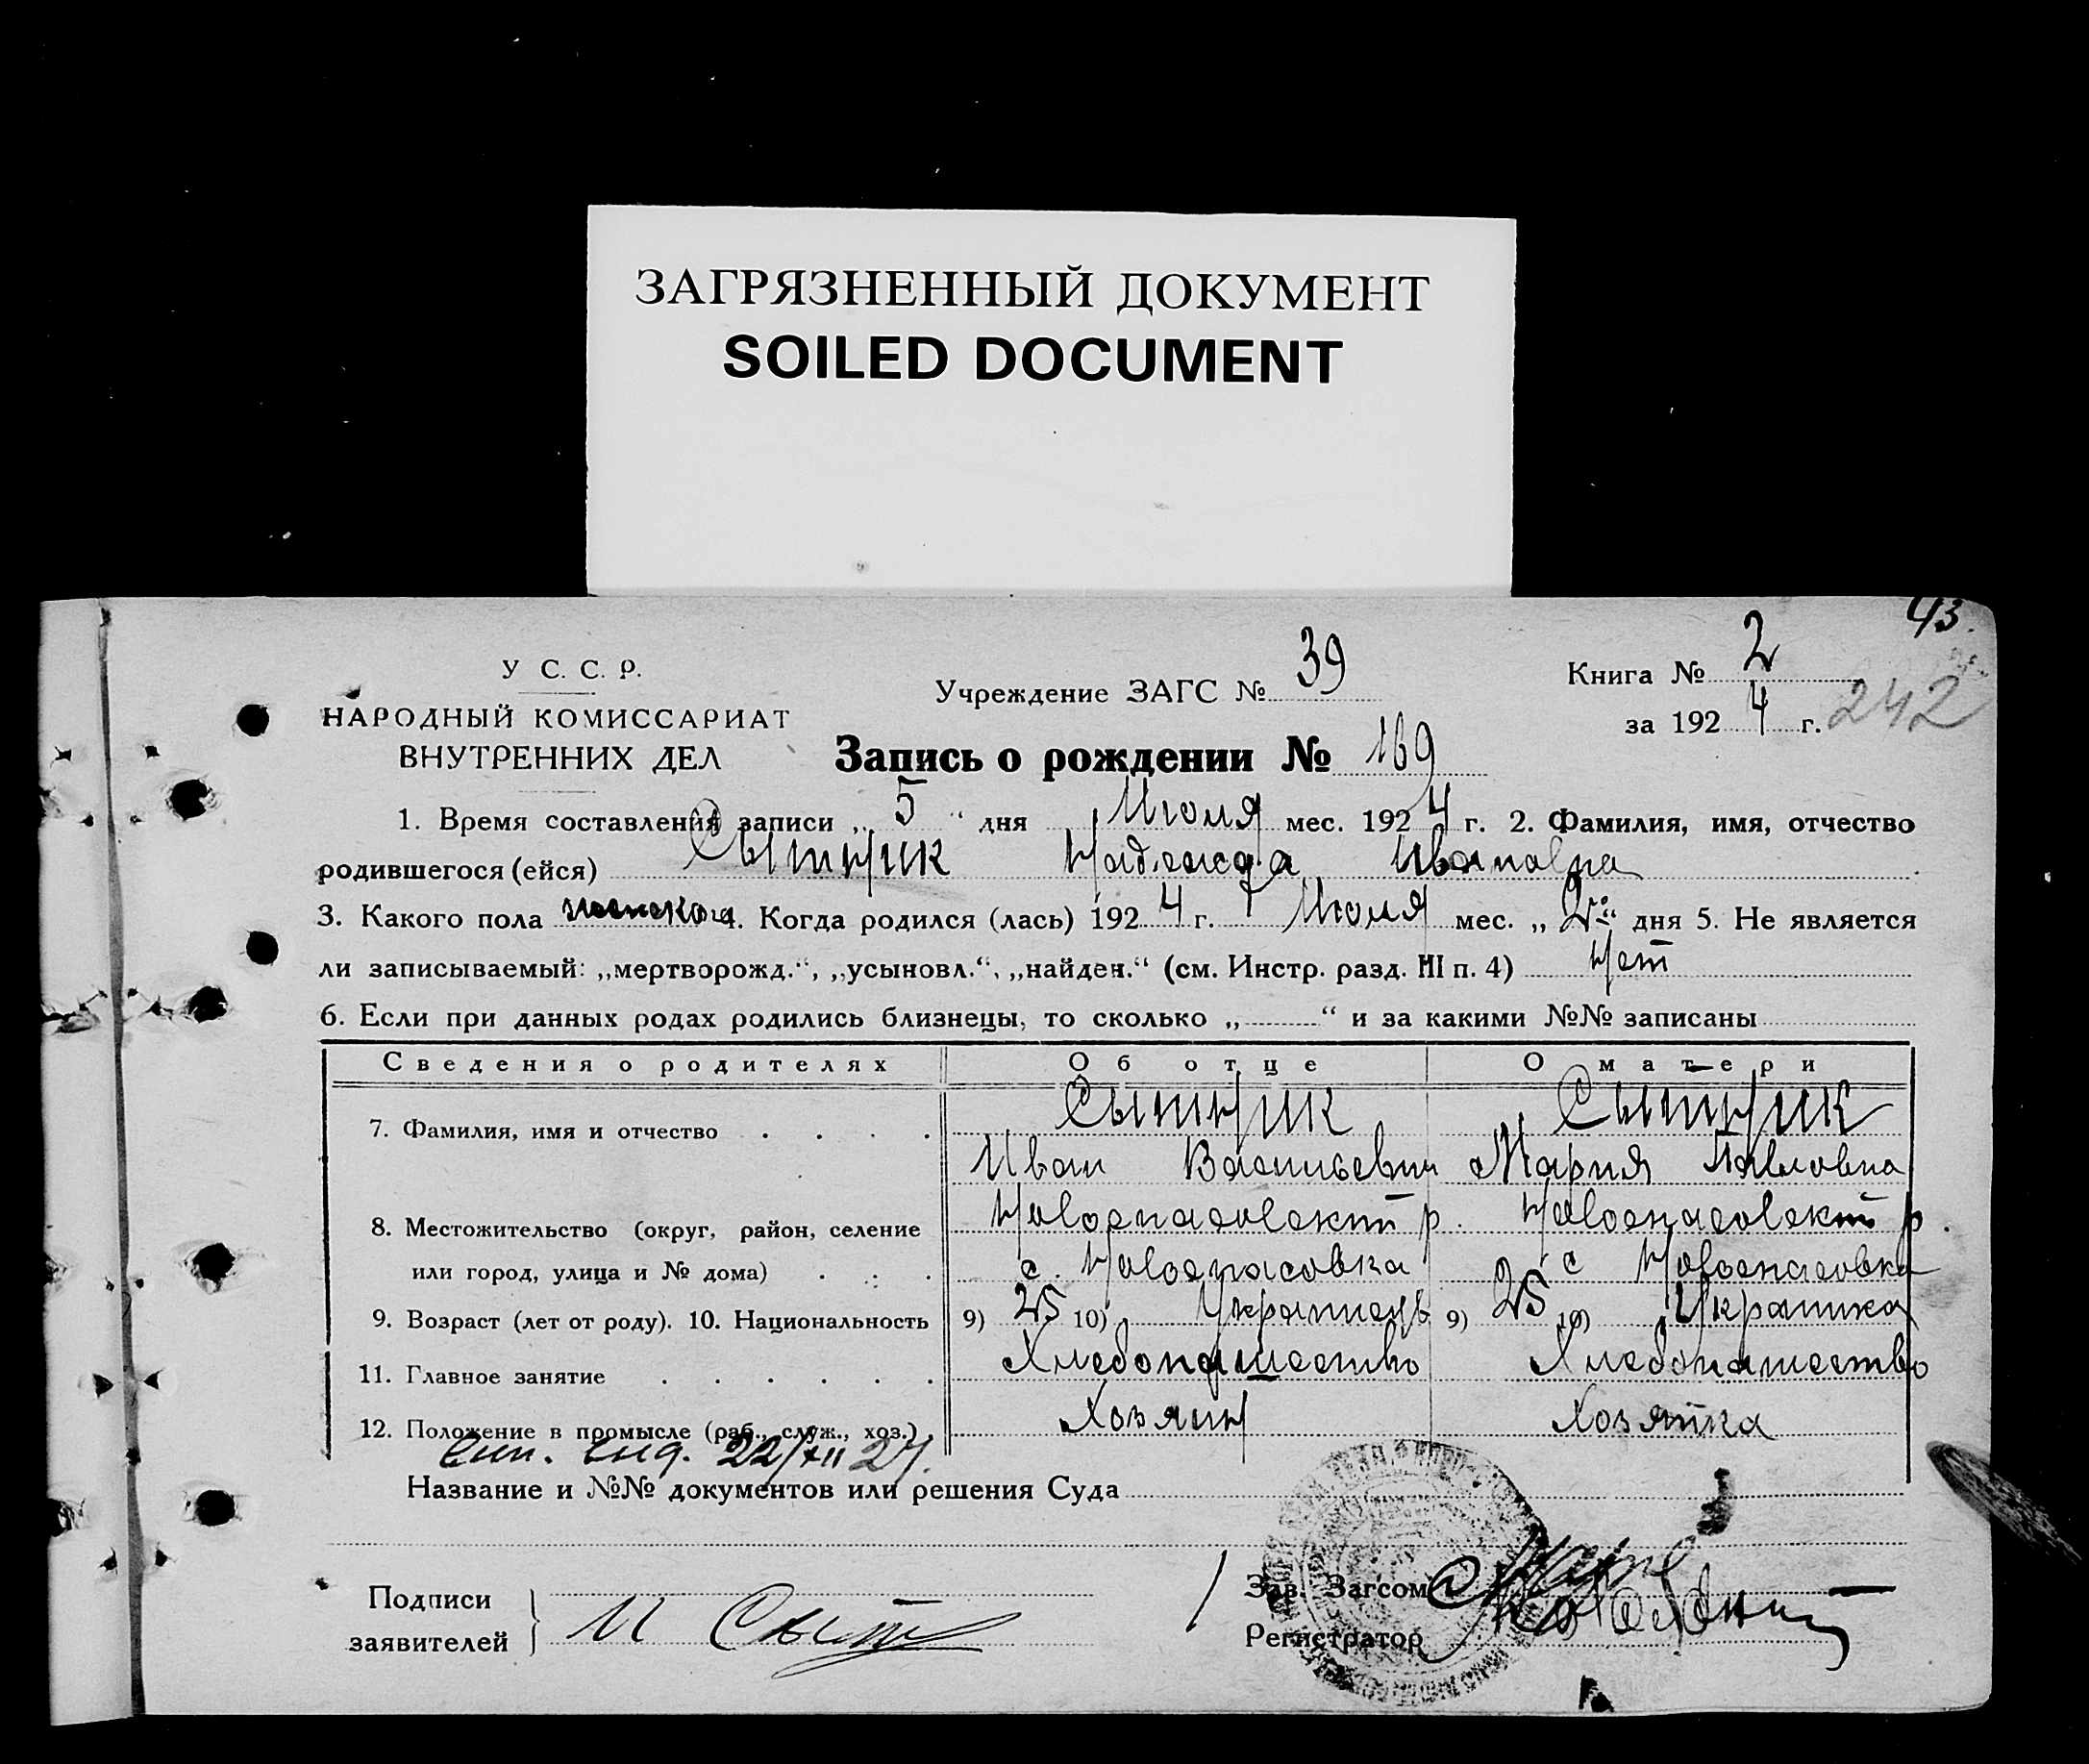 ЗАГРЯЗНЕННЫЙ ДОКУМЕНТ
SOILED DOCUMENT
43.
У С. С. Р.
НАРОДНЫЙ КОМИССАРИАТ
ВНУТРЕННИХ ДЕЛ
Учреждение ЗАГС № 39
Книга № 2
за 1924 г. 242
Запись о рождении № 169
1. Время составления записи „5“ дня Июля мес. 1924 г. 2. Фамилия, имя, отчество
родившегося (ейся) Сытник Надежда Ивановна
3. Какого пола женского 4. Когда родился (лась) 1924 г. Июля мес. „2“ дня 5. Не является
ли записываемый: „мертворожд.“, „усыновл.“, „найден.“ (см. Инстр. разд. III п. 4) Нет
6. Если при данных родах родились близнецы, то сколько „ “ и за какими №№ записаны
Сведения о родителях Об отце О матери
7. Фамилия, имя и отчество Сытник Сытник
Иван Васильевич Мария Павловна
8. Местожительство (округ, район, селение Новоспасовский р. Новоспасовский р.
или город, улица и № дома) с. Новоспасовка с Новоспасовка
9. Возраст (лет от роду). 10. Национальность 9) 25 10) Украинец 9) 25 10) Украинка
11. Главное занятие Хлебопашество Хлебопашество
12. Положение в промысле (раб., служ., хоз.) Хозяин Хозяйка
22/XII 27.
Название и №№ документов или решения Суда
Подписи
заявителей И Сытн
Зав. Загсом
Регистратор